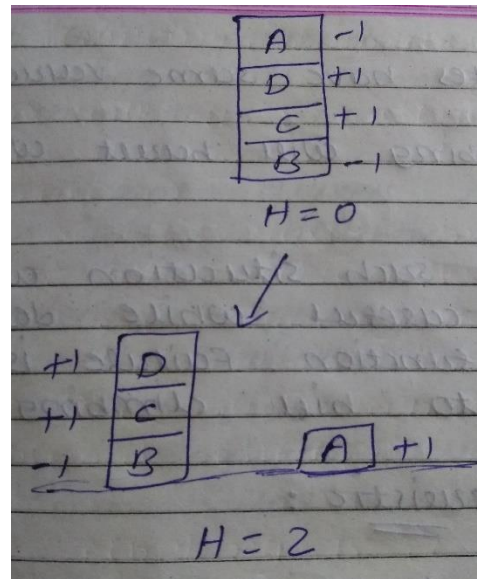 A -1
D +1
C +1
B -1
H = 0
+1 D
+1 C
-1 B
A +1
H = 2